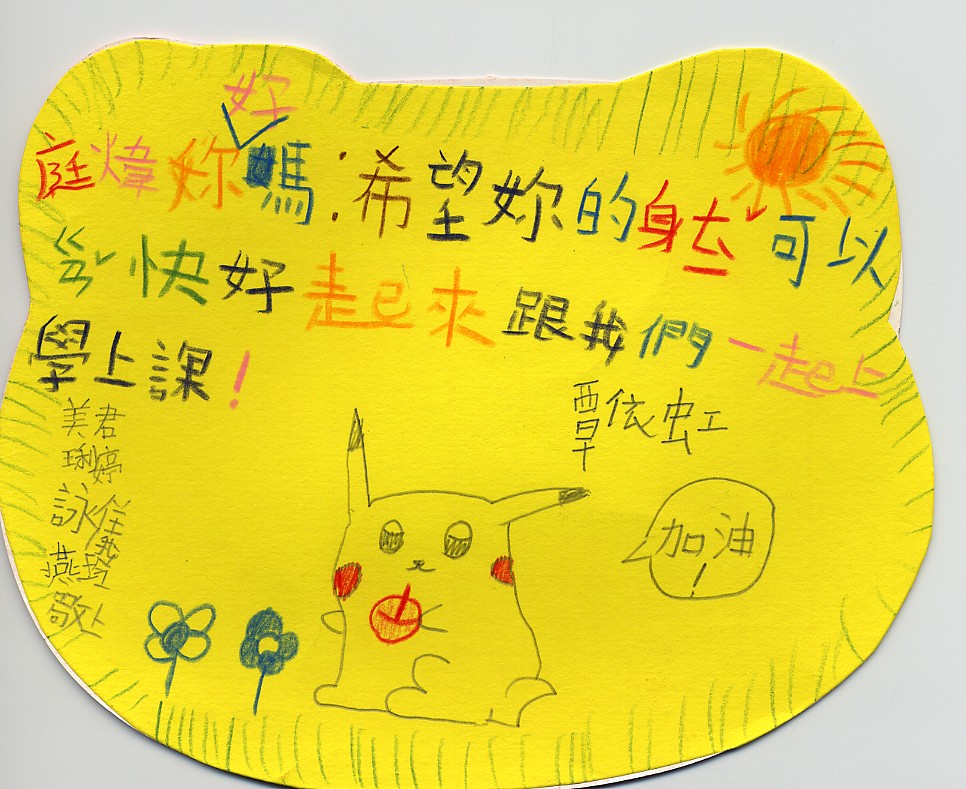 好
庭煒妳嗎:希望妳的身ㄊㄧˇ可以
ㄍㄢˇ快好起來跟我們一起上
學上課!
美君
琍婷
詠佳
燕玲
敬上
覃依虹
加油!